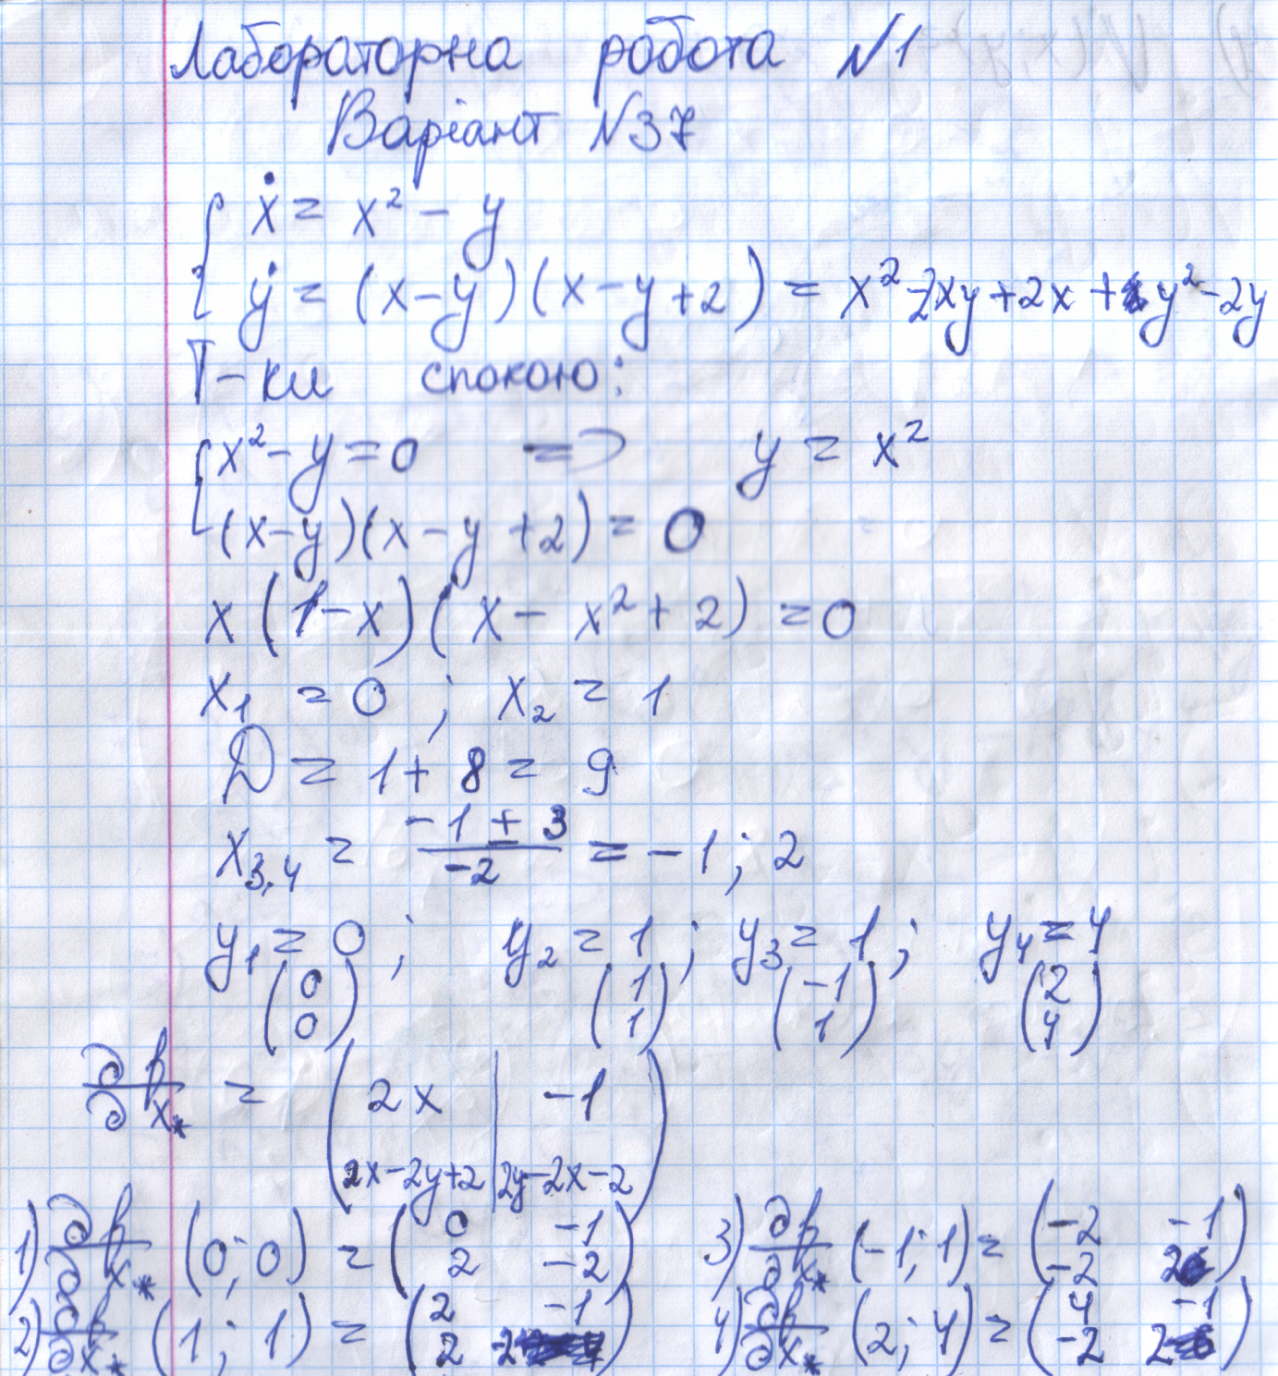 Лабораторна робота №1
Варіант №37
{ ẋ = x² - y
ẏ = (x-y)(x-y+2) = x²-2xy+2x+y²-2y
Т-ки спокою:
{ x²-y=0 => y = x²
(x-y)(x-y+2) = 0
x(1-x)(x-x²+2) = 0
x₁ = 0; x₂ = 1
D = 1+8 = 9
x₃,₄ = (-1±3)/(-2) = -1; 2
y₁ = 0; y₂ = 1; y₃ = 1; y₄ = 4
(0 0) (1 1) (-1 1) (2 4)
∂f/∂x* = (2x | -1
2x-2y+2 | 2y-2x-2)
1) ∂f/∂x* (0;0) = (0 -1 2 -2) 3) ∂f/∂x* (-1;1) = (-2 -1 -2 2)
2) ∂f/∂x* (1;1) = (2 -1 2 -2) 4) ∂f/∂x* (2;4) = (4 -1 -2 2)